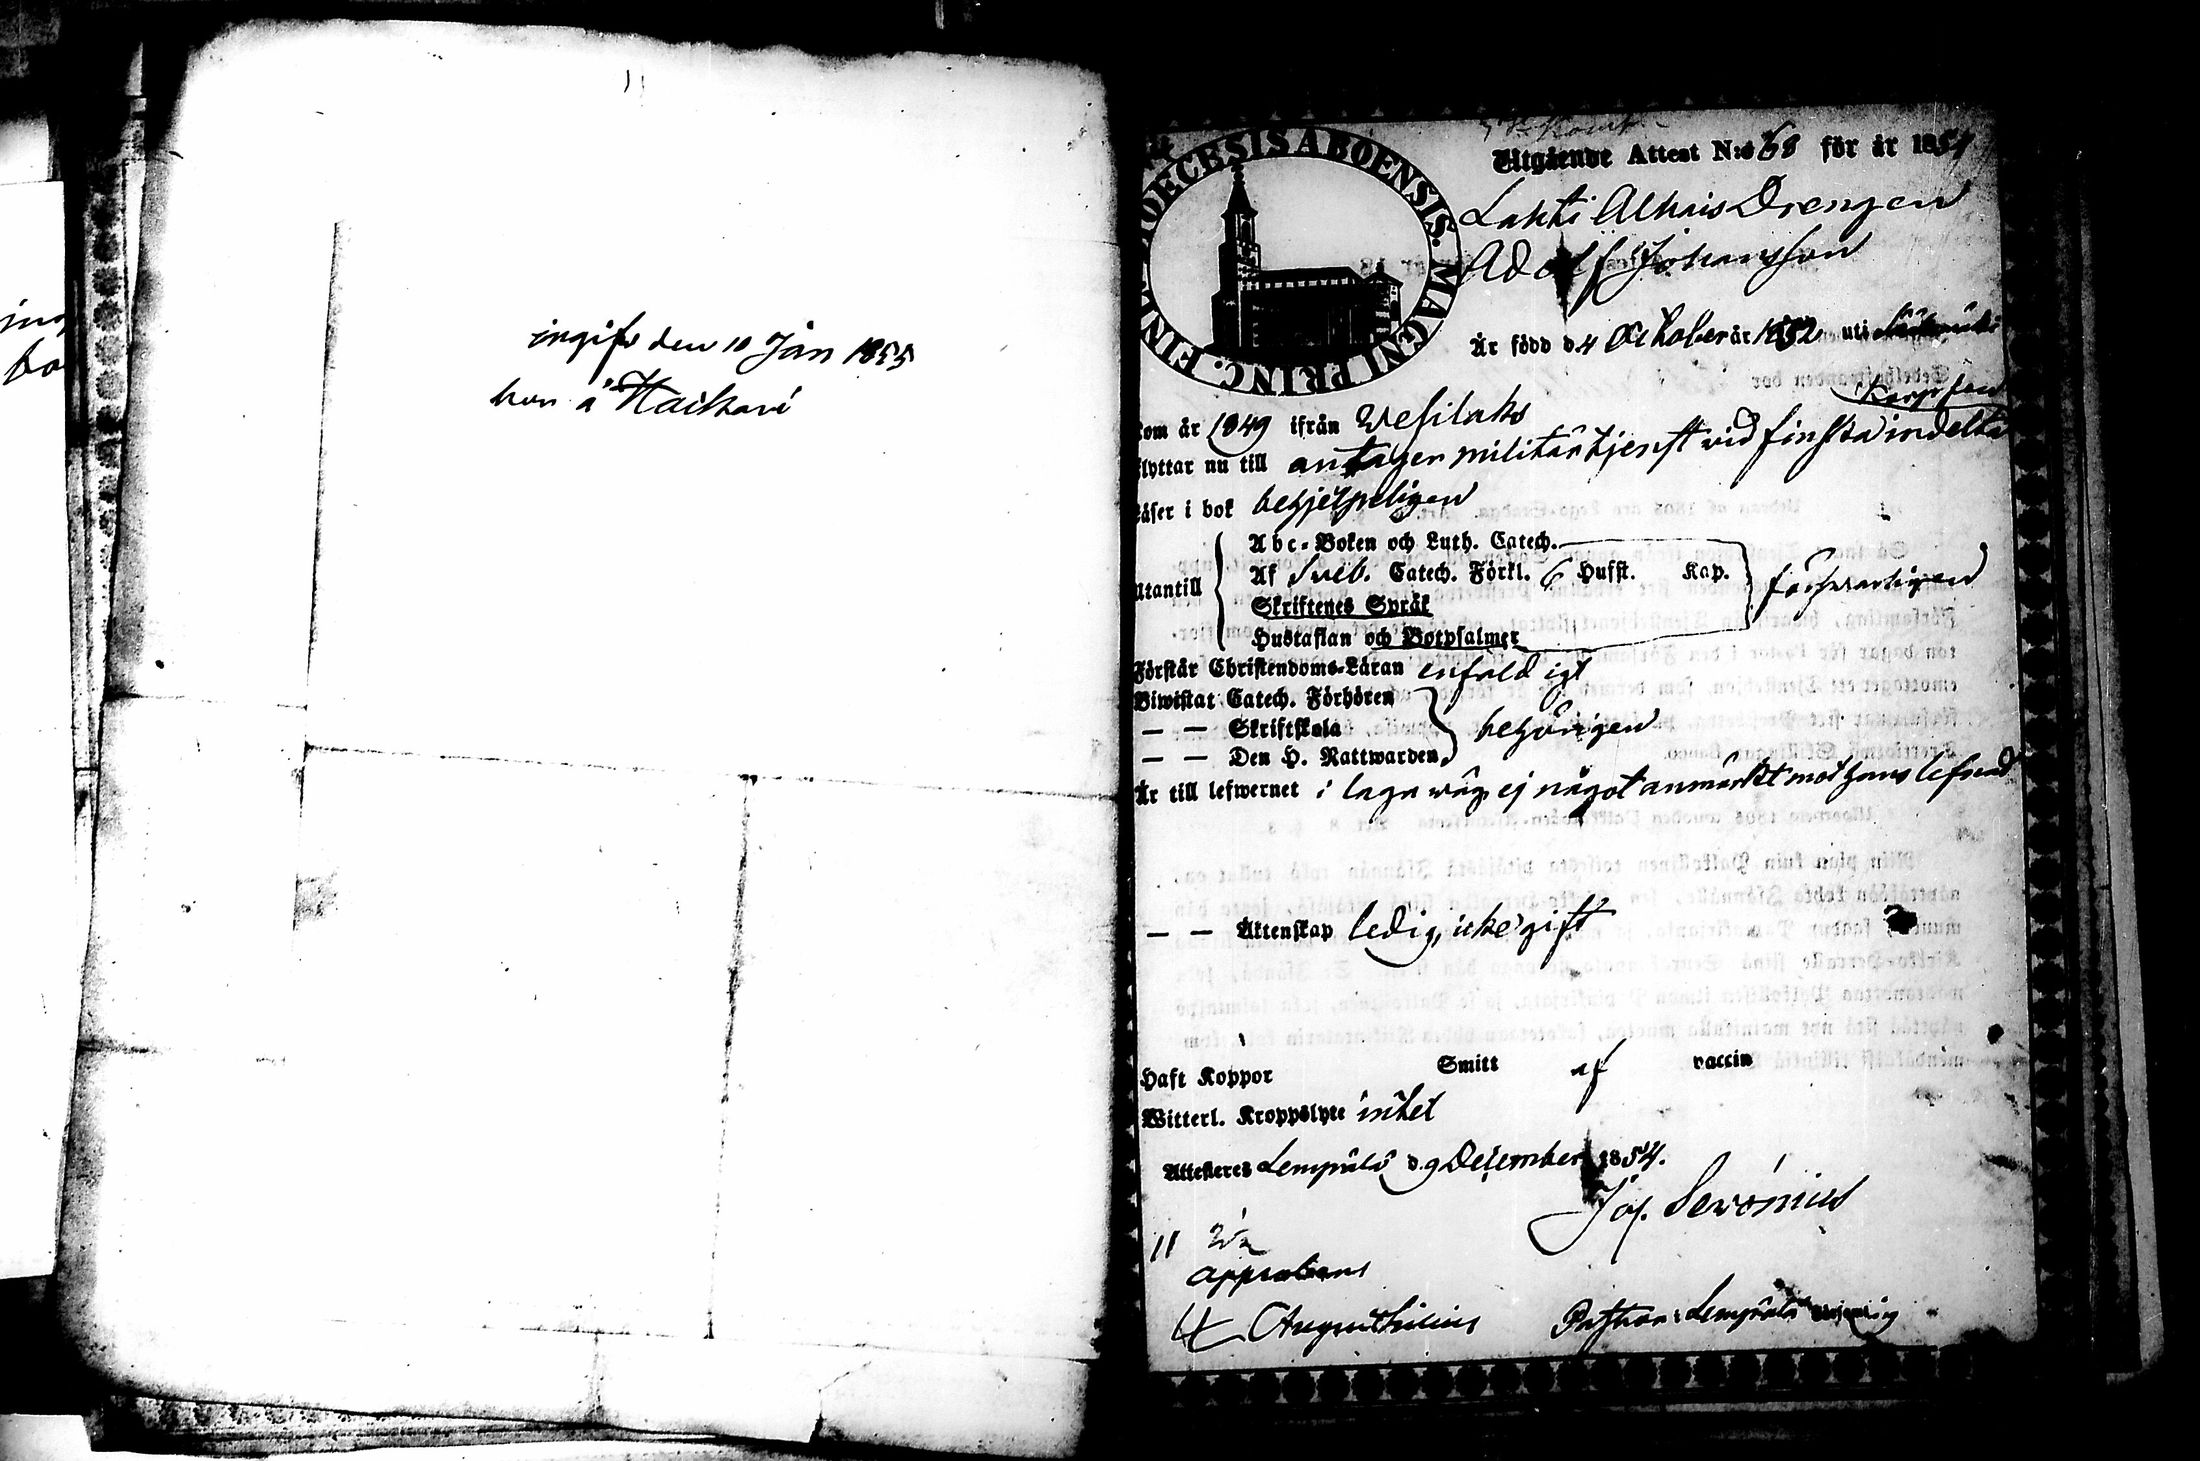 ingifv den 10 Jan 1855
bor å Haikari
DIOECESIS ABOENSIS. MAGNI PRINC. FINL.
Utgående Attest N:o 68 för år 1854
Lahti Alhais Drengen
Adolf Johansson
Är född d 4 October år 1832 uti
Kom år 1849 ifrån Vesilaks
flyttar nu till antager militär tjenst vid finska indelta
Läser i bok behjelpeligen
Abc-Boken och Luth. Catech.
Utantill Af Sveb. Catech. Förkl. 6 Hufst. Kap. försvarligen
Skriftenes Språk
Hustaflan och Botpsalmer
Förstår Christendoms-Läran enfaldigt
Biwistat Catech. Förhören
— — Skriftskola behörigen
— — Den H. Nattwarden
Är till lefwernet i laga väg ej något anmärkt mot hans lefnad
— — Äktenskap ledig, icke gift
Haft Koppor Smitt af vaccin
Witterl. Kroppslyte intet
Attesteras Lempälä d 9 December 1854.
Jos.
11
approberas
Pastor i Lempälä